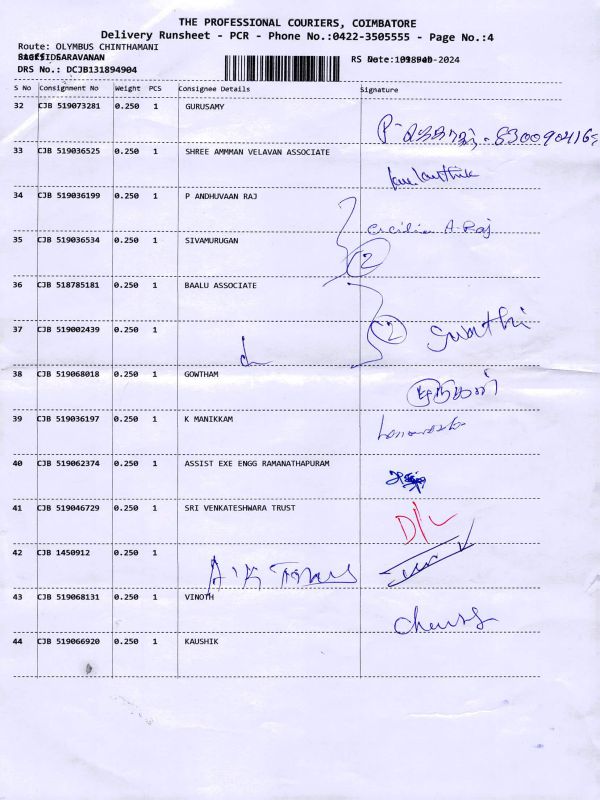 THE PROFESSIONAL COURIERS, COIMBATORE
Delivery Runsheet - PCR - Phone No.:0422-3505555 - Page No.:4
Route: OLYMBUS CHINTHAMANI
SARAVANAN
DRS No.: DCJB131894904
S No Consignment No Weight PCS Consignee Details Signature
32 CJB 519073281 0.250 1 GURUSAMY
33 CJB 519036525 0.250 1 SHREE AMMMAN VELAVAN ASSOCIATE
34 CJB 519036199 0.250 1 P ANDHUVAAN RAJ
Cicilia A. Raj
35 CJB 519036534 0.250 1 SIVAMURUGAN
2
36 CJB 518785181 0.250 1 BAALU ASSOCIATE
37 CJB 519002439 0.250 1
2 Swathi
38 CJB 519068018 0.250 1 GOWTHAM
39 CJB 519036197 0.250 1 K MANIKKAM
40 CJB 519062374 0.250 1 ASSIST EXE ENGG RAMANATHAPURAM
41 CJB 519046729 0.250 1 SRI VENKATESHWARA TRUST
D/L
42 CJB 1450912 0.250 1
43 CJB 519068131 0.250 1 VINOTH
44 CJB 519066920 0.250 1 KAUSHIK